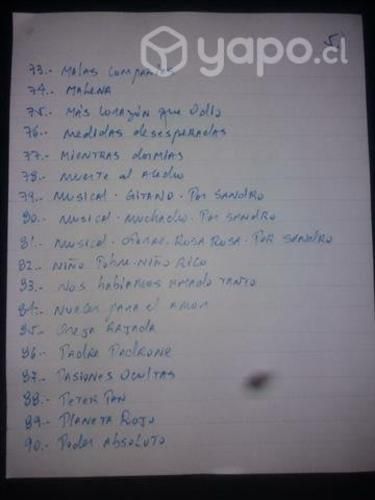 yapo.cl
5
73.- MALAS COMPAÑIAS
74.- MALENA
75.- MÁS CORAZÓN que Odio
76.- medidas desesperadas
77.- MIENTRAS dORMIAS
78.- MUERTE al Acecho
79.- MUSICAL. GITANO. POR SANDRO
80.- MUSICAL. Muchacho. POR SANDRO
81.- MUSICAL. ROSA ROSA. POR SANDRO
82.- NIÑO Pobre-NIÑO RICO
83.- NOS habiamos AMADO TANTO
84.- para el AMOR
85.- Oreja RAJADA
86.- PADRE PADRONE
87.- PASIONES OCULTAS
88.- PETER PAN
89.- PLANETA ROJO
90.- Poder ABSOLUTO